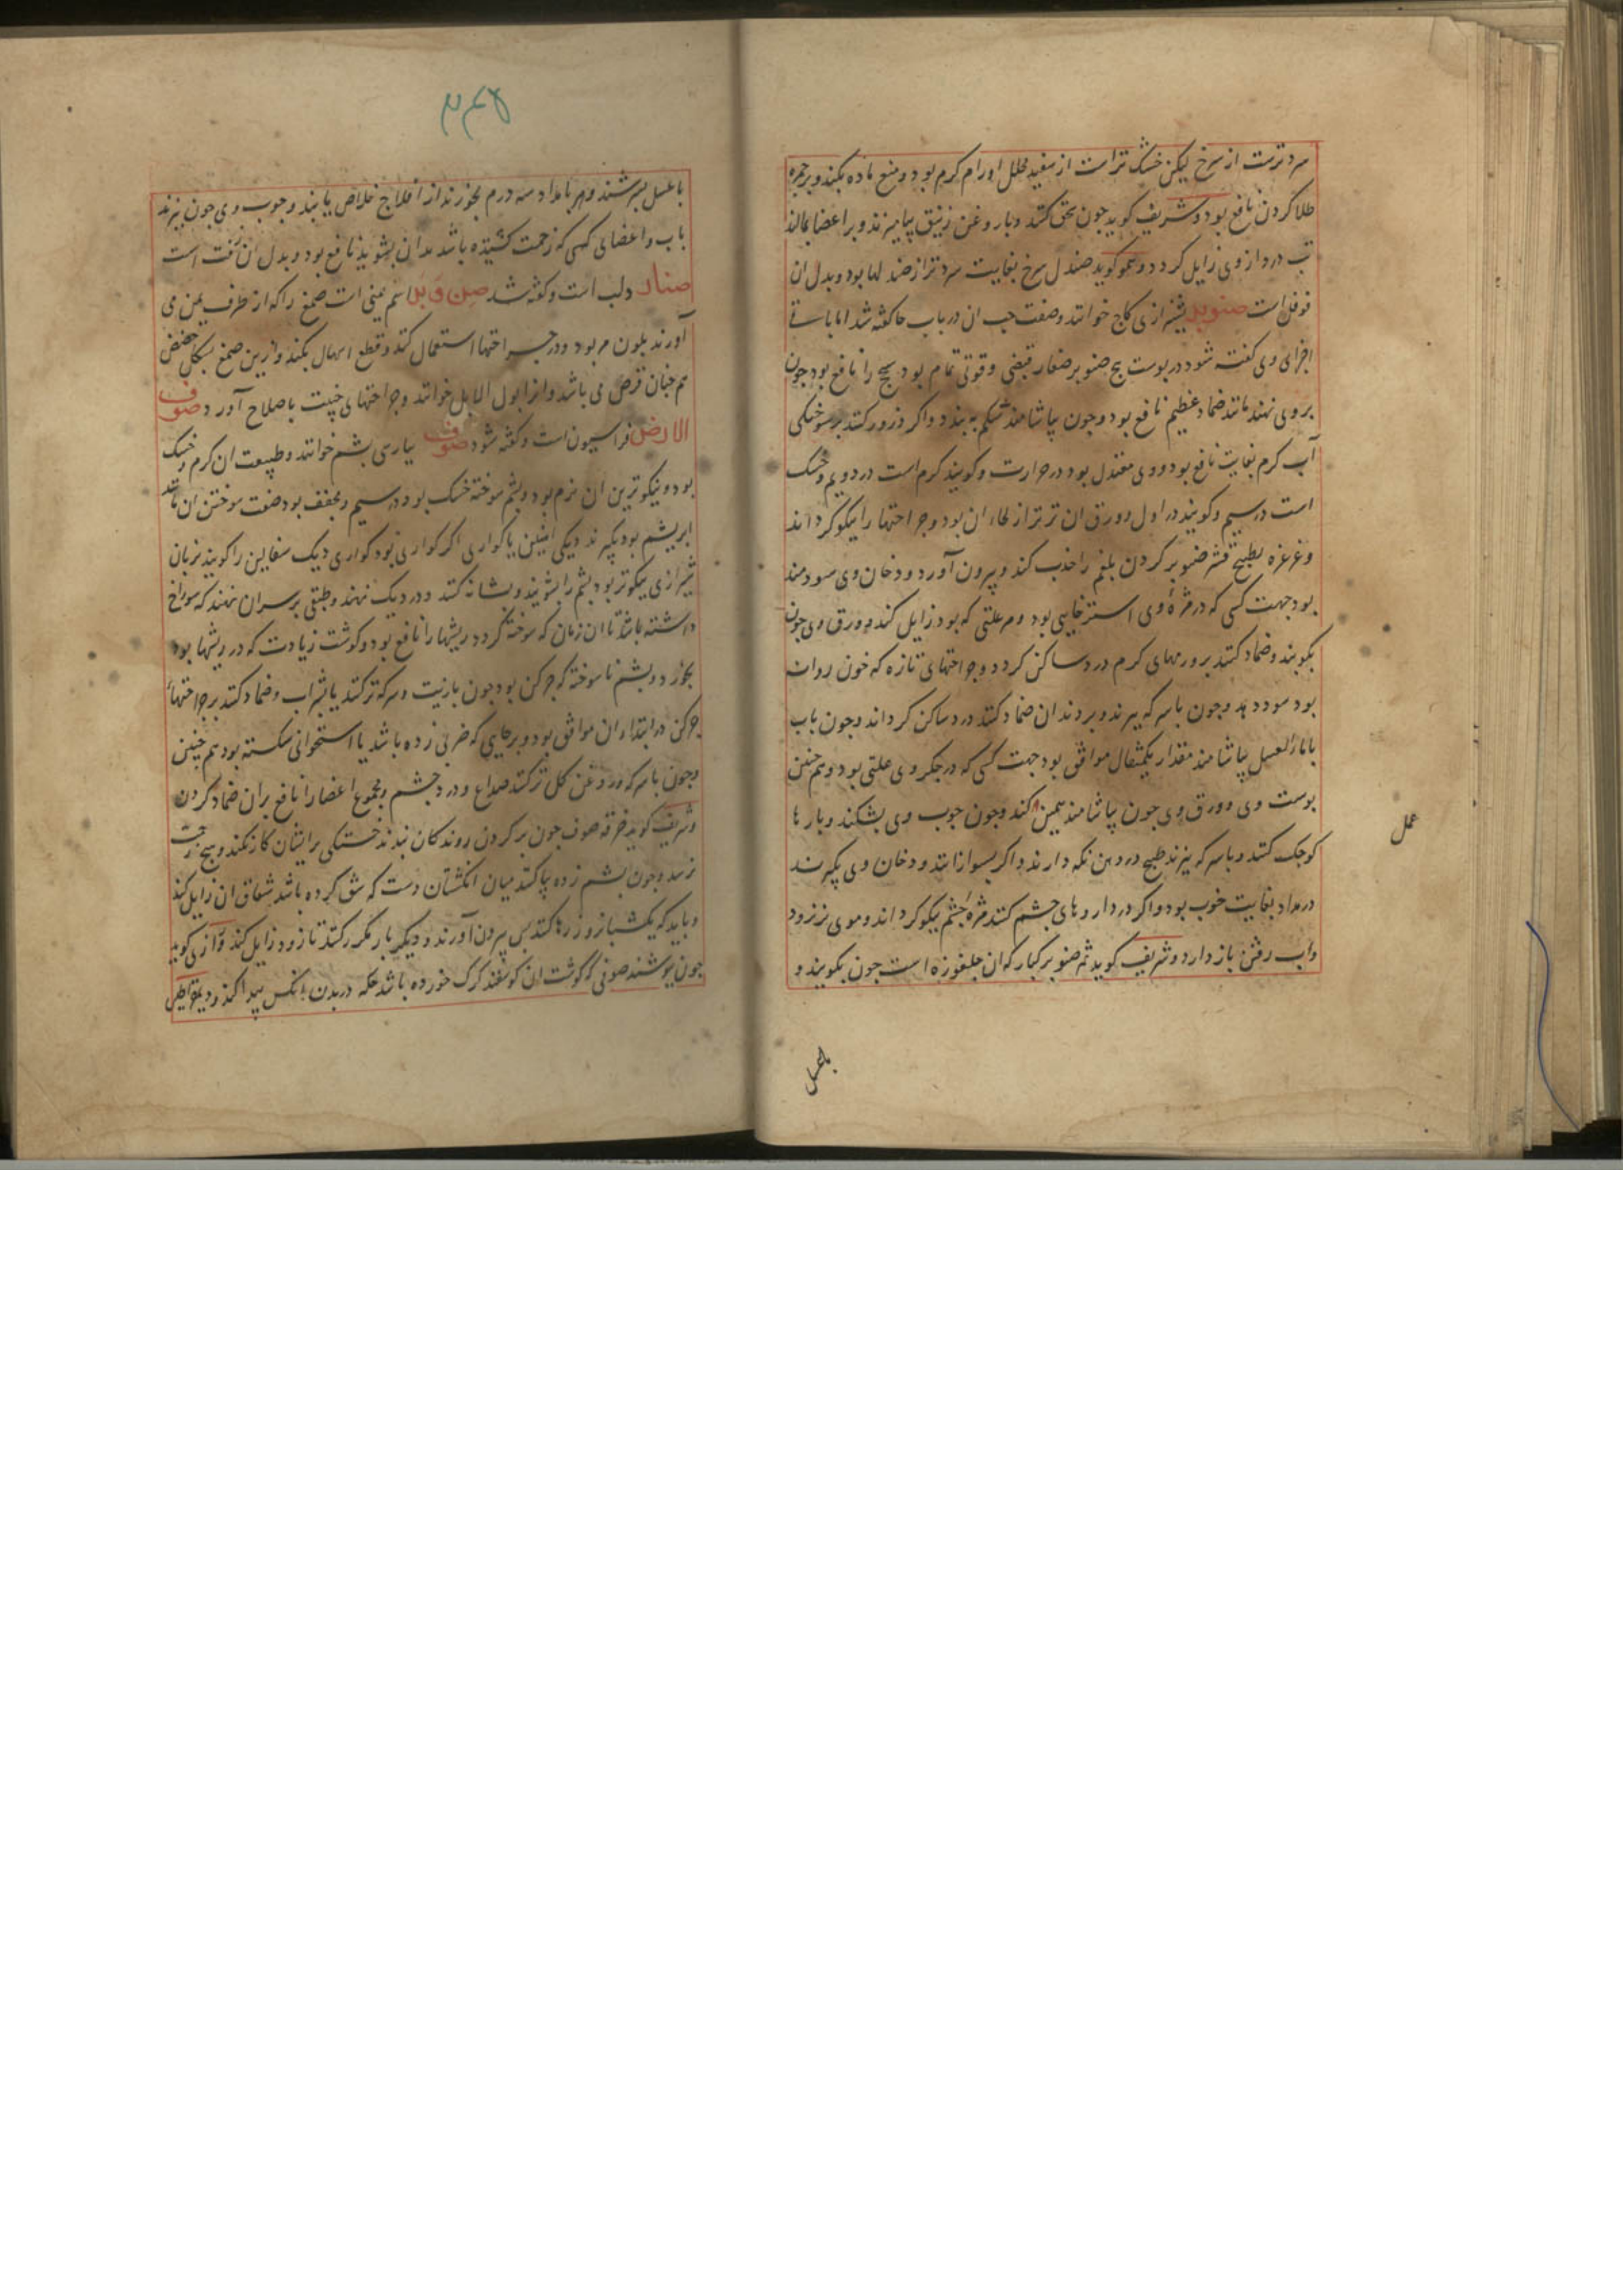 سردترست از سرخ لیکن خشک تراست از سفید محلل اورام کرم بود و منع ماده بکند و برجمره
طلا کردن نافع بود و شریف کوید چون سحق کنند و بار وغن زنبق بیامیزند و بر اعضا بمالند
تب در داز وی زایل کردد و عمو کوید صندل سرخ بغایت سردتر از صندلها بود و بدل ان
فوفل است صنوبر بشیرازی کاج خوانند و صفت حب ان در باب حا کفته شد اما باقی
اجزای وی کفته شود در بوست بیخ صنوبر صغار قبضی و قوتی تمام بود سحج را نافع بود چون
بر وی نهند مانند ضماد عظیم نافع بود و چون بیاشامند شکم به بندد و اکر ذرور کنند بر سوختکی
آب کرم بغایت نافع بود و وی معتدل بود در حرارت و کویند کرم است در دویم و خشک
است در سیم و کویند در اول و ورق ان تر تر از لحاء ان بود و جراحتها را نیکو کرداند
و غرغره بطبیخ قشر صنوبر کردن بلغم را جذب کند و بیرون آورد و دخان وی سودمند
بود جهت کسی که در مژهٔ وی استرخایی بود و هر علتی که بود زایل کند و ورق وی چون
بکوبند و ضماد کنند بر ورمهای کرم درد ساکن کردد و جراحتهای تازه که خون روان
بود سود دهد و چون باسرکه بپزند و بردندان ضماد کنند درد ساکن کرداند و چون باب
باماءالعسل بیاشامند مقدار یکمثقال موافق بود جهت کسی که در جکر وی علتی بود و هم چنین
بوست وی و ورق وی چون بیاشامند همین کند و چون چوب وی بشکند و بارها
کوچک کنند و باسرکه بپزند طبیخ در دهن نکه دارند و اکر بسوزانند و دخان وی بکیرند
در مداد بغایت خوب بود و اکر در داروهای چشم کنند مژهٔ چشم نیکو کرداند و موی نریزد
واب رفتن باز دارد و شریف کوید ثمر صنوبر کبار که ان جلغوزه است چون بکوبند و
عمل
باعسل
باعسل بسرشند و هر بامداد سه درم بخورند از افلاج خلاص یابند و چوب وی چون بپزند
باب و اعضای کسی که زحمت کشیده باشد بدان بشویند نافع بود و بدل ان زفت است
صنار دلب است و کفته شد صن وبل اسم یمنی است صمغ راکه از طرف یمن می
آورند بلون مر بود و در جراحتها استعمال کنند و قطع اسهال بکند و از این صمغ بشکل حضض
هم چنان قرص می باشد و انرا بول الابل خوانند و جراحتهای خبیث باصلاح آورد صوف
الارض فراسیون است و کفته شود صوف بپارسی بشم خوانند و طبیعت ان کرم و خشک
بود و نیکوترین ان نرم بود و بشم سوخته خشک بود در سیم و مجفف بود صفت سوختن ان مانند
ابریشم بود بکیرند دیکی اهنین یا کواری اکر کواری نبود کواری دیک سفالین را کویند بزبان
شیرازی نیکوتر بود بشم را بشویند و بشانه کنند و در دیک نهند و طبقی بر سران نهند که سوراخ
داشته باشد تا ان زمان که سوخته کردد ریشها را نافع بود و کوشت زیادت که در ریشها بود
بخورد و بشم ناسوخته که چرکن بود چون بازیت و سرکه تر کنند یا بشراب و ضماد کنند بر جراحتهاء
چرکن در ابتداء ان موافق بود و برجایی که ضربی زده باشد یا استخوانی شکسته بود هم چنین
و چون باسرکه و روغن کل تر کنند صداع و درد چشم و مجموع اعضا را نافع بران ضماد کردن
و شریف کوید خرقه صوف چون بر کردن روندکان بندند خستکی برایشان کار نکند و هیچ زحمت
نرسد و چون بشم زده بجا کنند میان انکشتان دست که شق کرده باشد شقاق ان زایل کند
و باید که یکشبانروز رها کنند بس بیرون آورند و دیکر بار مکرر کنند تا زود زایل کند و رازی کوید
چون بپوشند صوفی که کوشت ان کوسفند کرک خورده باشد حکه در بدن انکس بیدا کند و دیسقوریدس